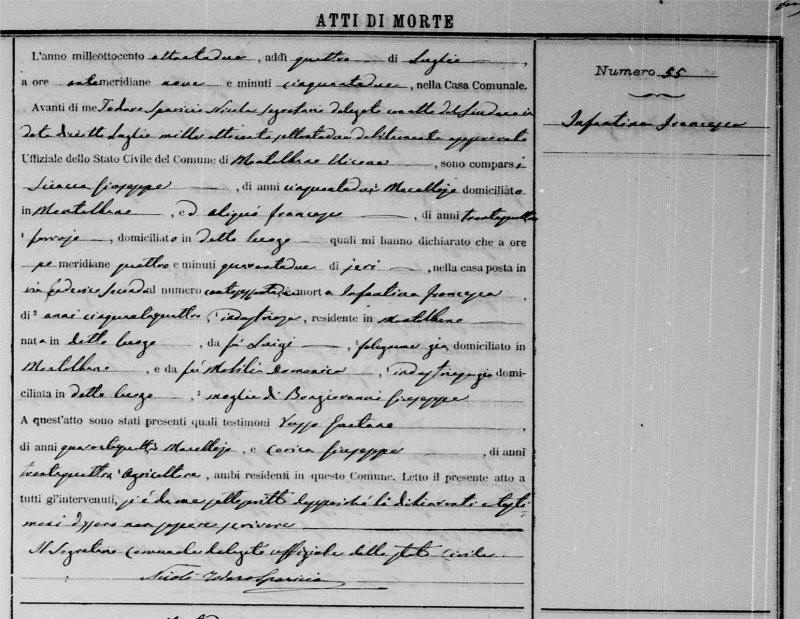 ATTI DI MORTE
L'anno milleottocento ottantadue, addì quattro di Luglio,
a ore antemeridiane nove e minuti cinquantadue, nella Casa Comunale.
Avanti di me Todaro Sparicio Nicola Segretario delegato con atto del Sindaco in
data Luglio mille ottocento ottantadue debitamente approvato
Uffiziale dello Stato Civile del Comune di Montalbano Elicona, sono comparsi
Sciacca Giuseppe, di anni Macellajo domiciliato
in Montalbano, ed Aliquò Francesco, di anni trentaquattro
ferrajo, domiciliato in detto luogo quali mi hanno dichiarato che a ore
pomeridiane quattro e minuti quarantadue di jeri, nella casa posta in
via Federico Secondo al numero è morta Infantina Francesca,
di anni cinquantaquattro, residente in Montalbano
nata in detto luogo, da fu Luigi, già domiciliato in
Montalbano, e da fu Domenica, già domi-
ciliata in detto luogo, moglie di Bongiovanni Giuseppe
A quest'atto sono stati presenti quali testimoni Gaetano,
di anni Macellajo, e Corica Giuseppe, di anni
trentaquattro Agricoltore, ambi residenti in questo Comune. Letto il presente atto a
tutti gl'intervenuti, si è da me sottoscritto dappoiché li dichiaranti e testi-
moni dissero non sapere scrivere
Il Segretario comunale delegato uffiziale dello stato civile
Nicolò Todaro Sparicio
Numero 55
Infantina Francesca